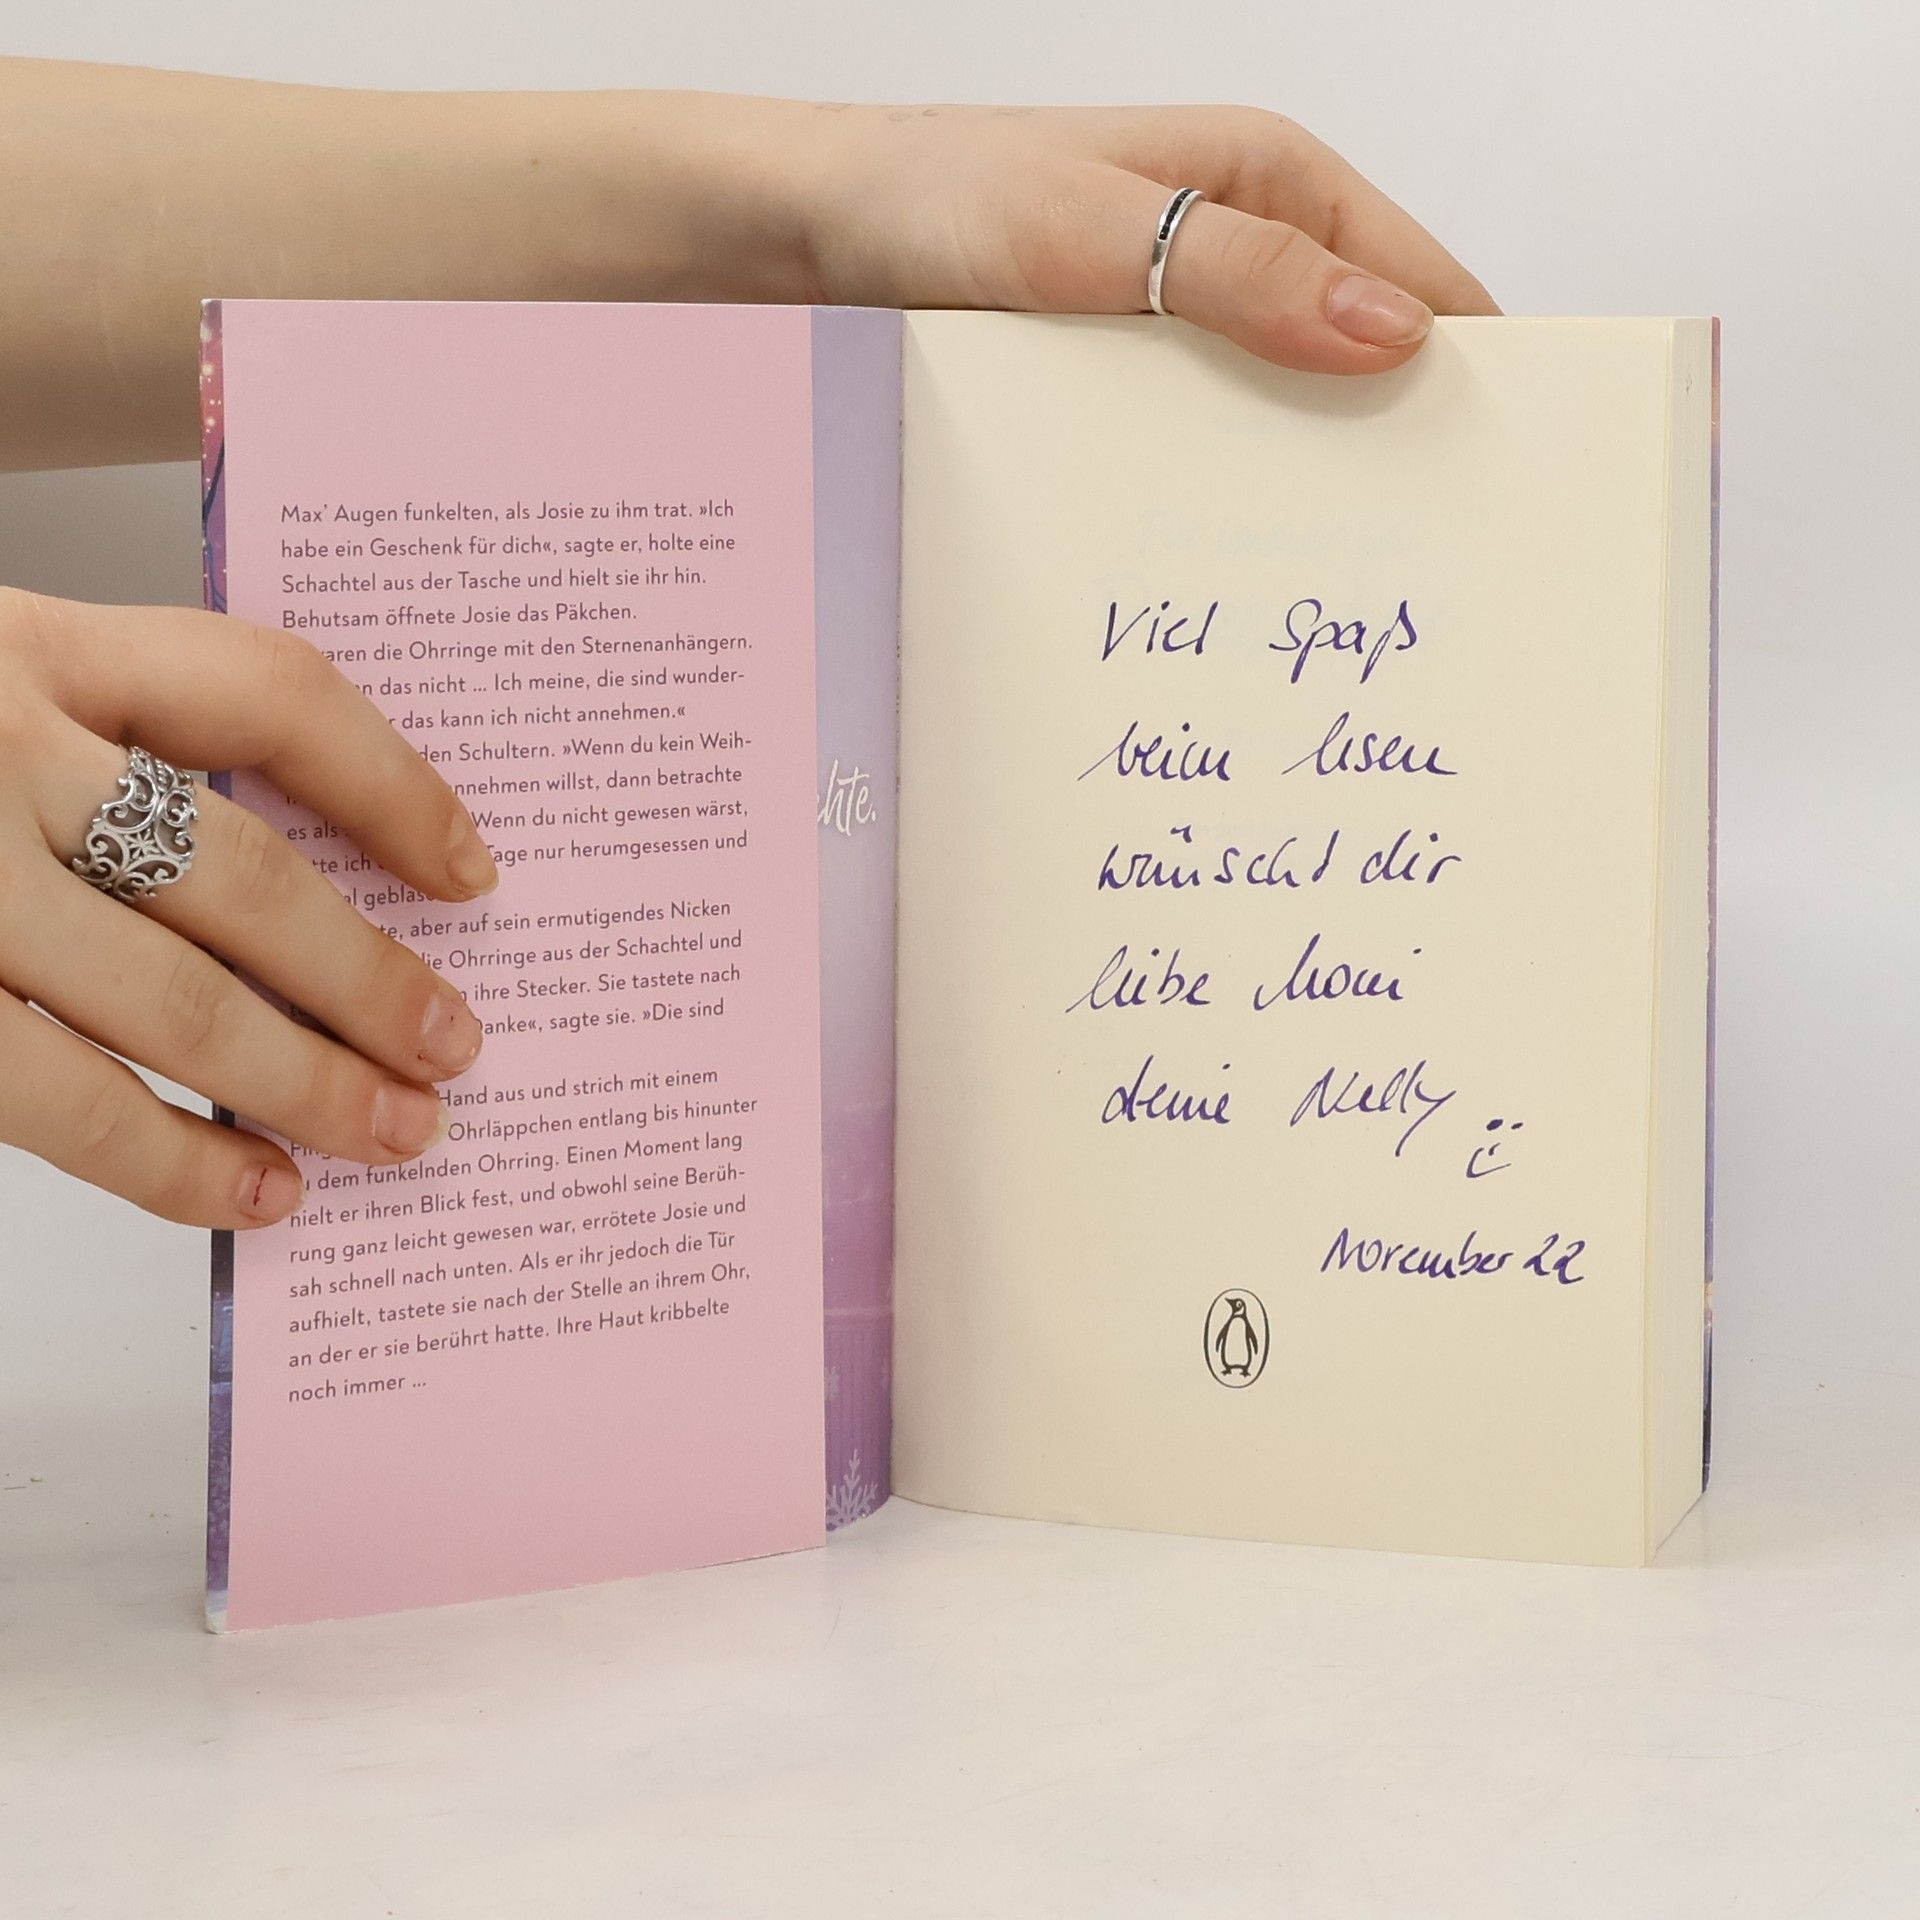 Max’ Augen funkelten, als Josie zu ihm trat. »Ich
habe ein Geschenk für dich«, sagte er, holte eine
Schachtel aus der Tasche und hielt sie ihr hin.
Behutsam öffnete Josie das Päkchen.
waren die Ohrringe mit den Sternenanhängern.
das nicht ... Ich meine, die sind wunder-
das kann ich nicht annehmen.«
den Schultern. »Wenn du kein Weih-
annehmen willst, dann betrachte
es als Wenn du nicht gewesen wärst,
ich Tage nur herumgesessen und
geblas
aber auf sein ermutigendes Nicken
die Ohrringe aus der Schachtel und
ihre Stecker. Sie tastete nach
Danke«, sagte sie. »Die sind
Hand aus und strich mit einem
Ohrläppchen entlang bis hinunter
dem funkelnden Ohrring. Einen Moment lang
hielt er ihren Blick fest, und obwohl seine Berüh-
rung ganz leicht gewesen war, errötete Josie und
sah schnell nach unten. Als er ihr jedoch die Tür
aufhielt, tastete sie nach der Stelle an ihrem Ohr,
an der er sie berührt hatte. Ihre Haut kribbelte
noch immer ...
chte.
Viel Spaß
beim lesen
wünscht dir
liebe Moni
deine Nelly
November 22